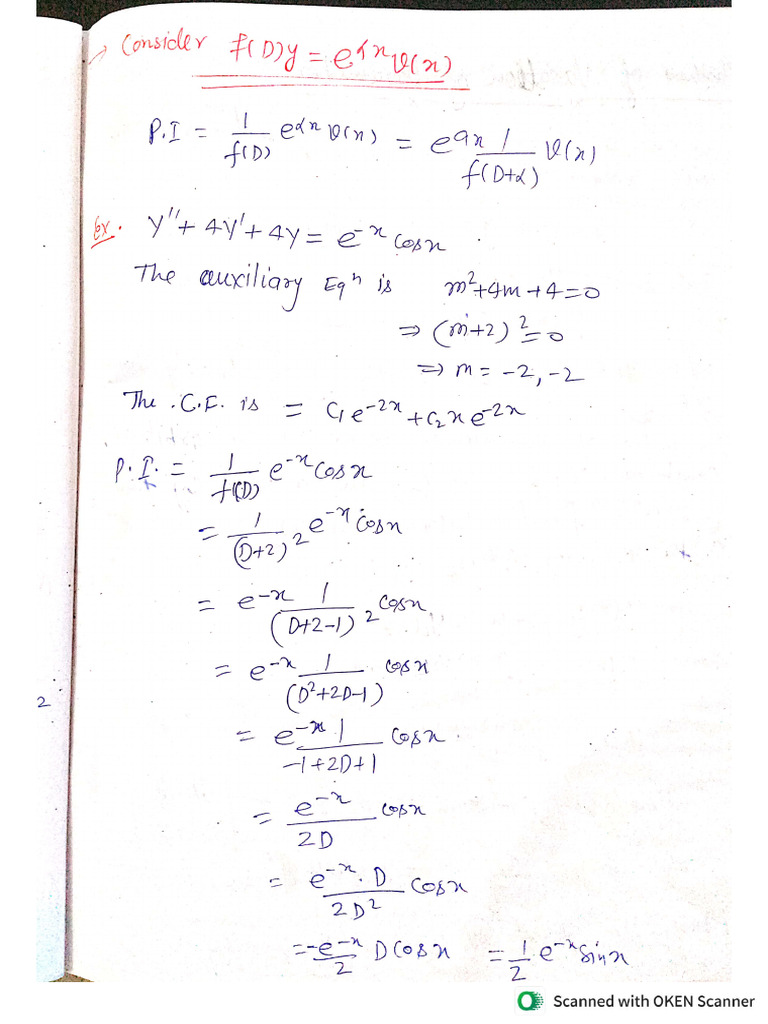 → Consider f(D)y = e^{αx} V(x)
P.I = \frac{1}{f(D)} e^{αx} V(x) = e^{ax} \frac{1}{f(D+α)} V(x)
Ex. y'' + 4y' + 4y = e^{-x} cosx.
The auxiliary Eqⁿ is m²+4m+4=0
⇒ (m+2)² = 0
⇒ m = -2, -2
The .C.F. is = C₁e^{-2x} + C₂xe^{-2x}
P.I. = \frac{1}{f(D)} e^{-x} cosx
= \frac{1}{(D+2)^2} e^{-x} cosx
= e^{-x} \frac{1}{(D+2-1)^2} cosx
= e^{-x} \frac{1}{(D²+2D-1)} cosx
2
= e^{-x} \frac{1}{-1+2D+1} cosx.
= \frac{e^{-x}}{2D} cosx
= \frac{e^{-x}.D}{2D²} cosx
= \frac{-e^{-x}}{2} D cosx = \frac{1}{2} e^{-x} sinx
Scanned with OKEN Scanner